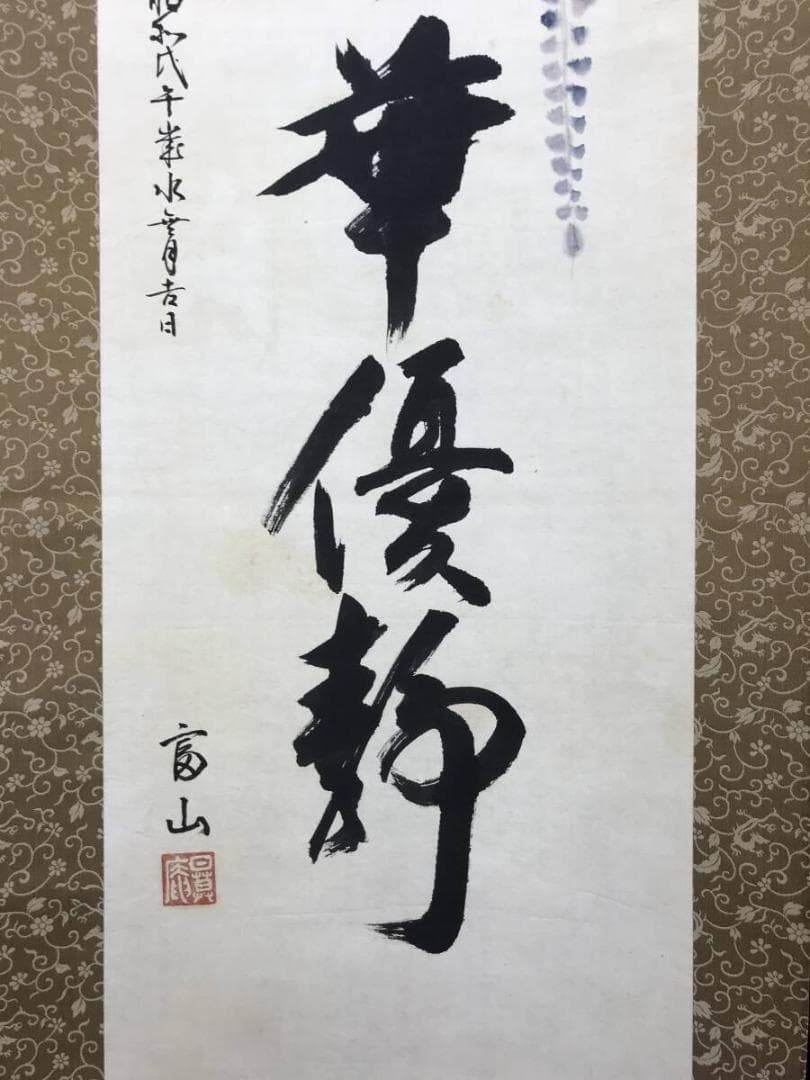 華優静
昭和戊午歳水無月吉日
富山